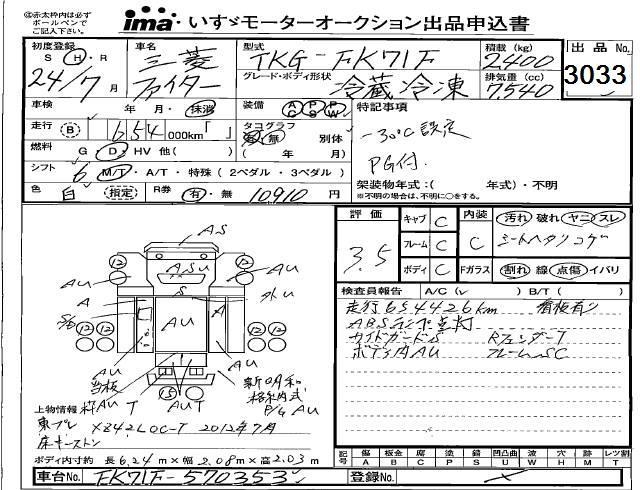 ㊟赤太枠内は必ず
ボールペンで
ご記入下さい。
ima いすゞモーターオークション出品申込書
初度登録 車名 型式 積載 (kg) 出品No.
S H・R 三菱 TKG-FK71F 2,400 3033
24/7 月 ファイター グレード・ボディ形状 冷蔵冷凍 排気量 (cc) 7,540
車検 年・月・抹消 装備 AC PS PW 特記事項
走行 B 654 000km「 」 タコグラフ 有・無 別体 -30℃設定
燃料 G・D・HV 他( ) ( 年 / 月) PG付.
シフト 6 M/T・A/T・特殊 (2ペダル・3ペダル) 架装物年式:( 年式)・不明
色 白 指定 R券 有・無 10910 円 ※不明の場合は、不明に○をする。
評価 3.5
キャブ C 内装 C 汚れ 破れ ヤニ スレ
フレーム C シートヘタリコゲ
ボディ C Fガラス 割れ 線 点傷 イバリ
検査員報告 A/C(✓ ) B/T( )
走行654426km 看板有り
ABSランプ点灯
サイドガードS RフェンダーT
ボディ内AU フレームSC
AS
12 12
ASU
AU AU
A S A
AU
12 12 12 12
AU AU
当板
AU T AUT
15
P/G AU
上物情報
東プレ X842LOC-T 2012年7月
床キーストン
ボディ内寸約 長6.24m×幅2.08m×高2.03m
記号 傷A 板金B 腐C 塗P 錆S 凹凸曲U 波W 穴H 跡M レツ割T
車台No. FK71F-570353 登録No.